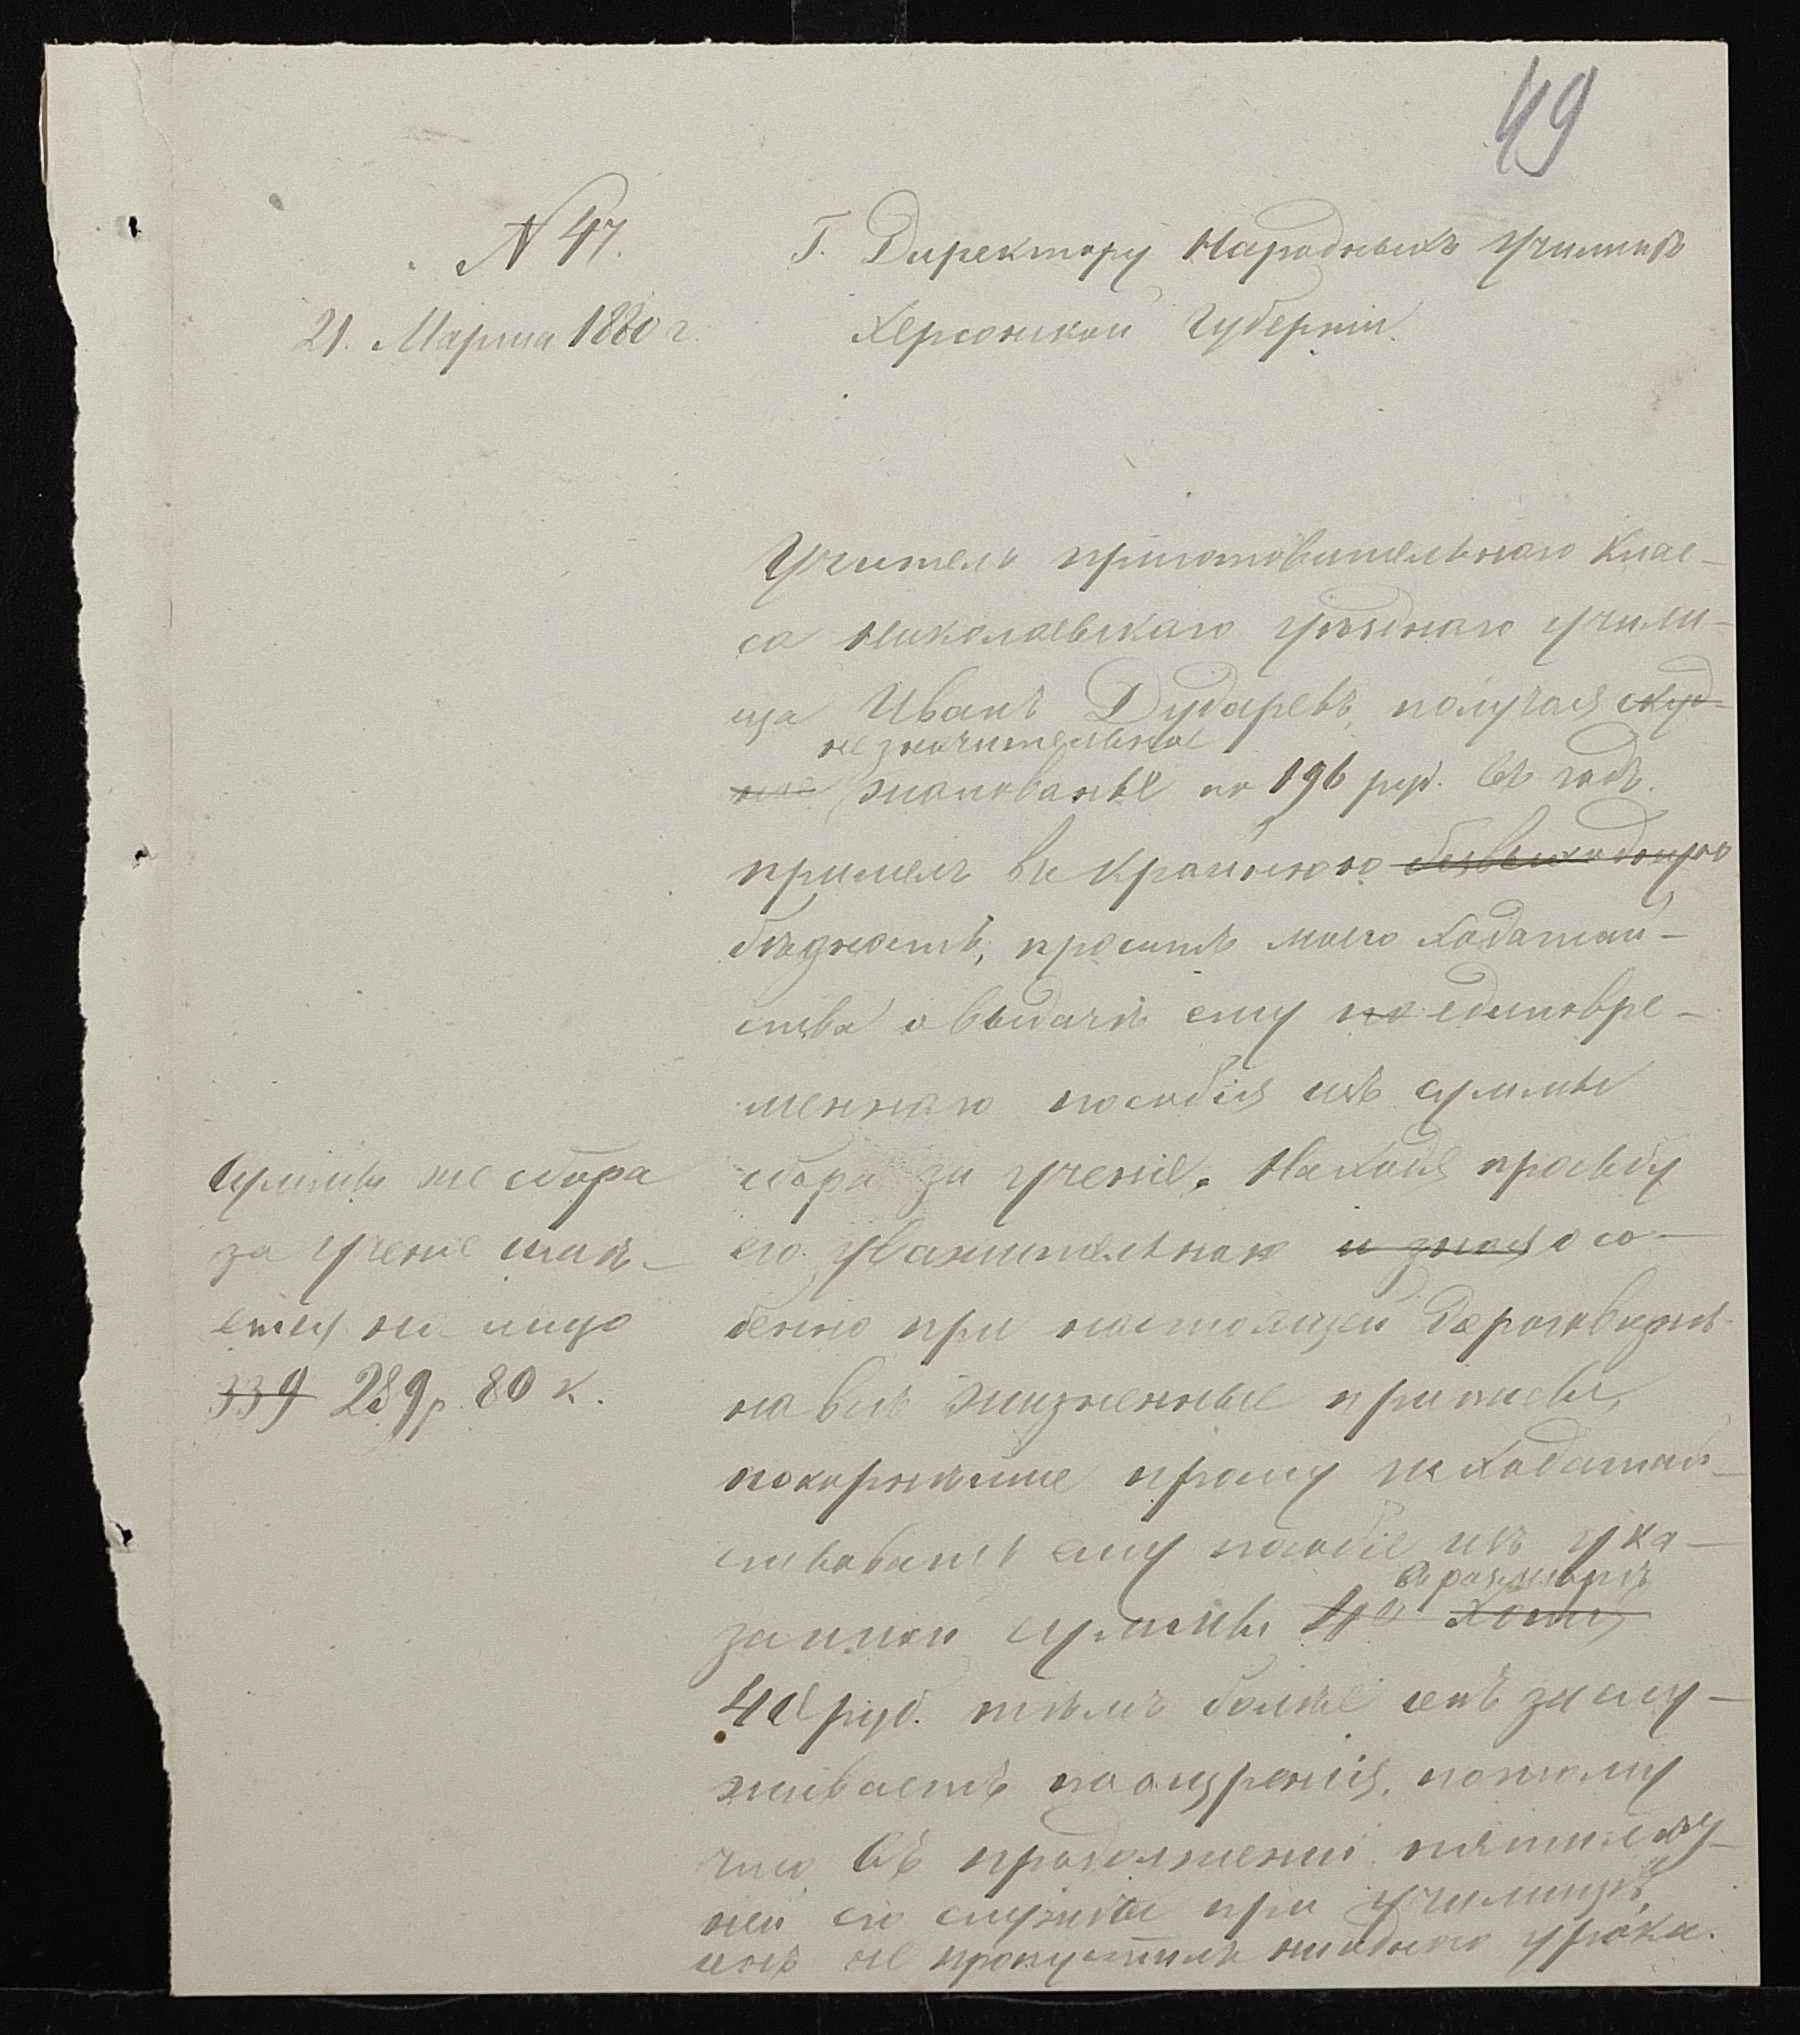 49
N 47.
21. Марта 1880 г.
Г. Директору Народныхъ Училищъ
Херсонской Губерніи.
Учитель приготовительнаго клас-
са Николаевскаго уѣзднаго учили-
ща Иванъ Дударевъ, получая скуд-
незначительное
ное жалованье по 196 руб. въ годъ.
пришелъ въ крайнюю безвыходную
бѣдность, проситъ моего ходатай-
ства о выдачѣ ему по единовре-
меннаго пособія изъ суммы
сбора за ученіе. Находя просьбу
его уважительною и зная осо-
бенно при настоящей дороговизнѣ
на всѣ жизненные припасы,
покорнѣйше прошу исходатай-
ствовать ему пособіе изъ ука-
въ размѣрѣ
занной суммы 40 хотя
40 руб. тѣмъ болѣе онъ заслу-
живаетъ поощренія, потому
что въ продолженіи пятилет-
ней его службы при училищѣ,
онъ не пропустилъ ниодного урока.
Суммы же сбора
за ученіе имѣ-
ется на лицо
339 289 р. 80 к.